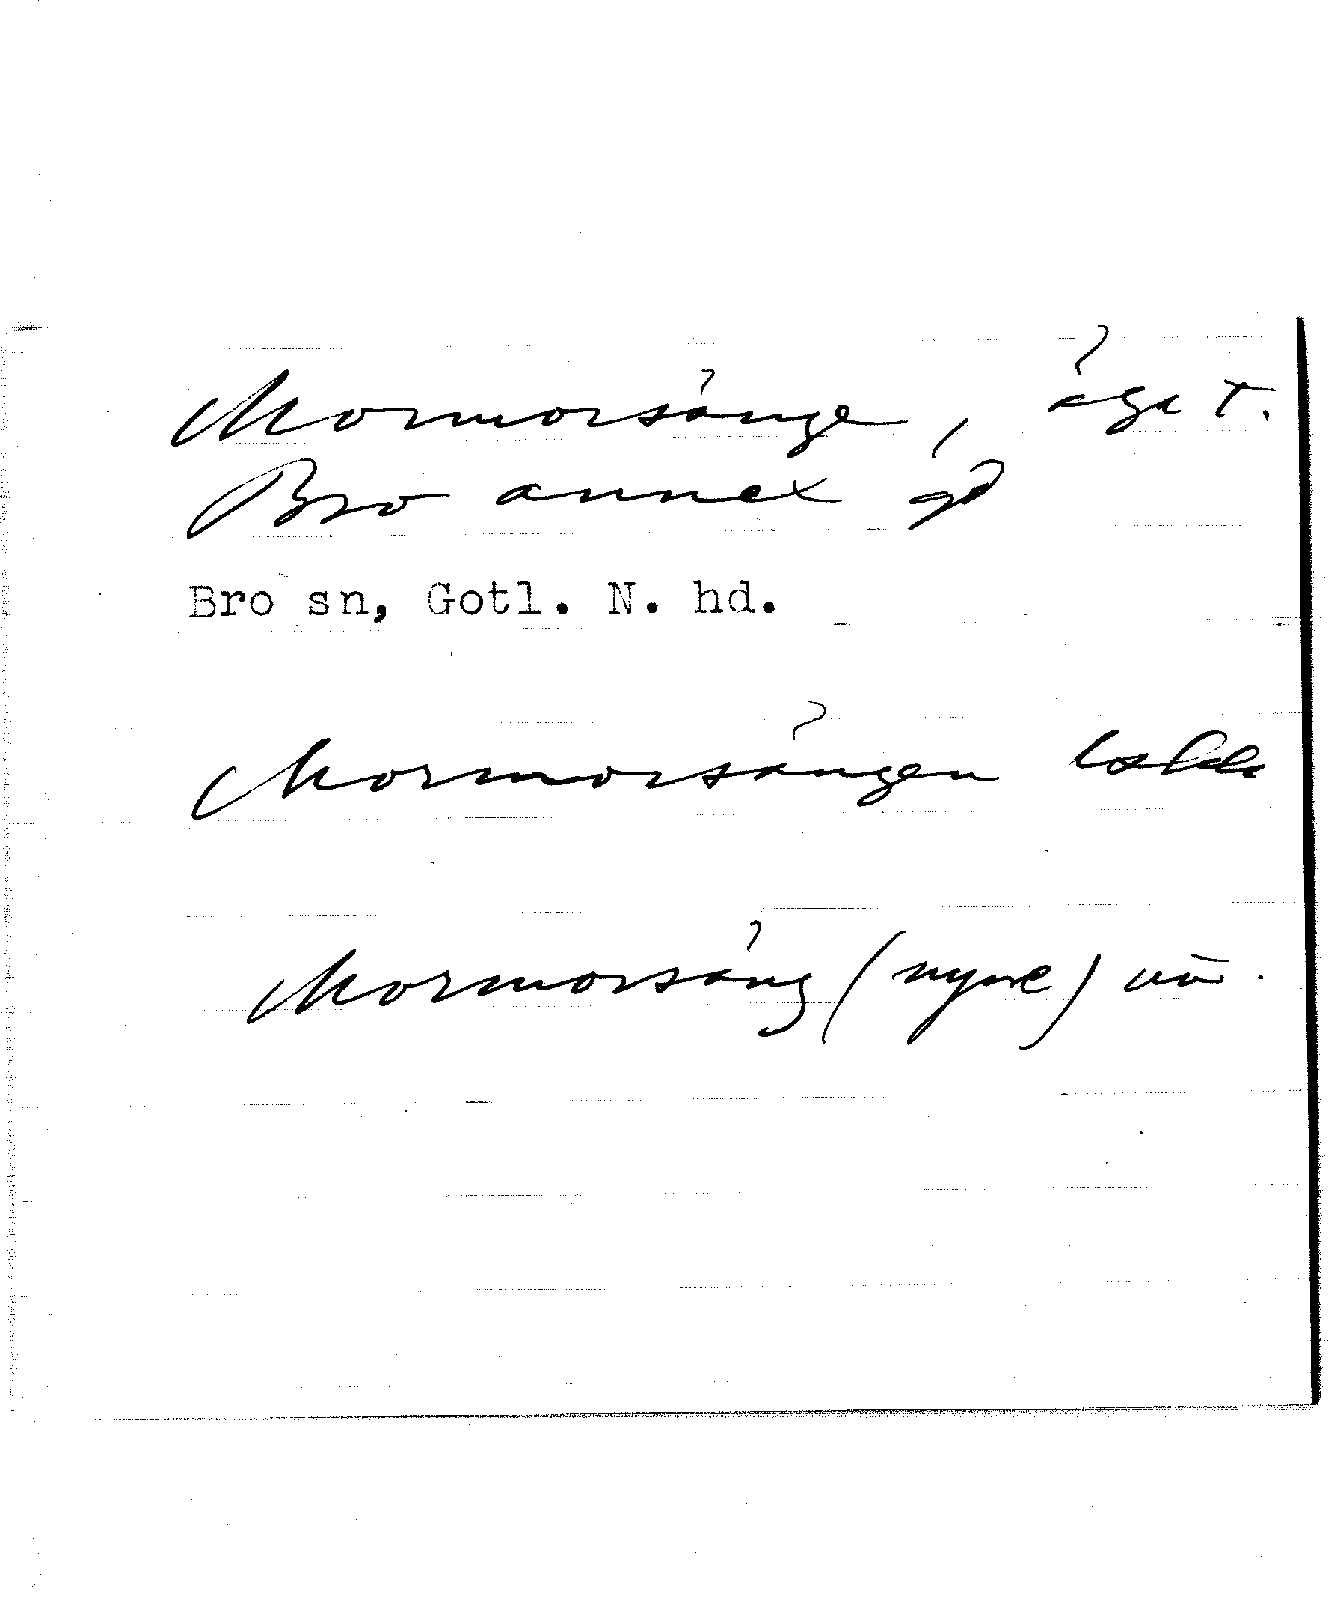 Mormorsänge, äga t.
Bro annex gd
Bro sn, Gotl. N. hd.
Mormorsängen
Mormorsäng (nyre)